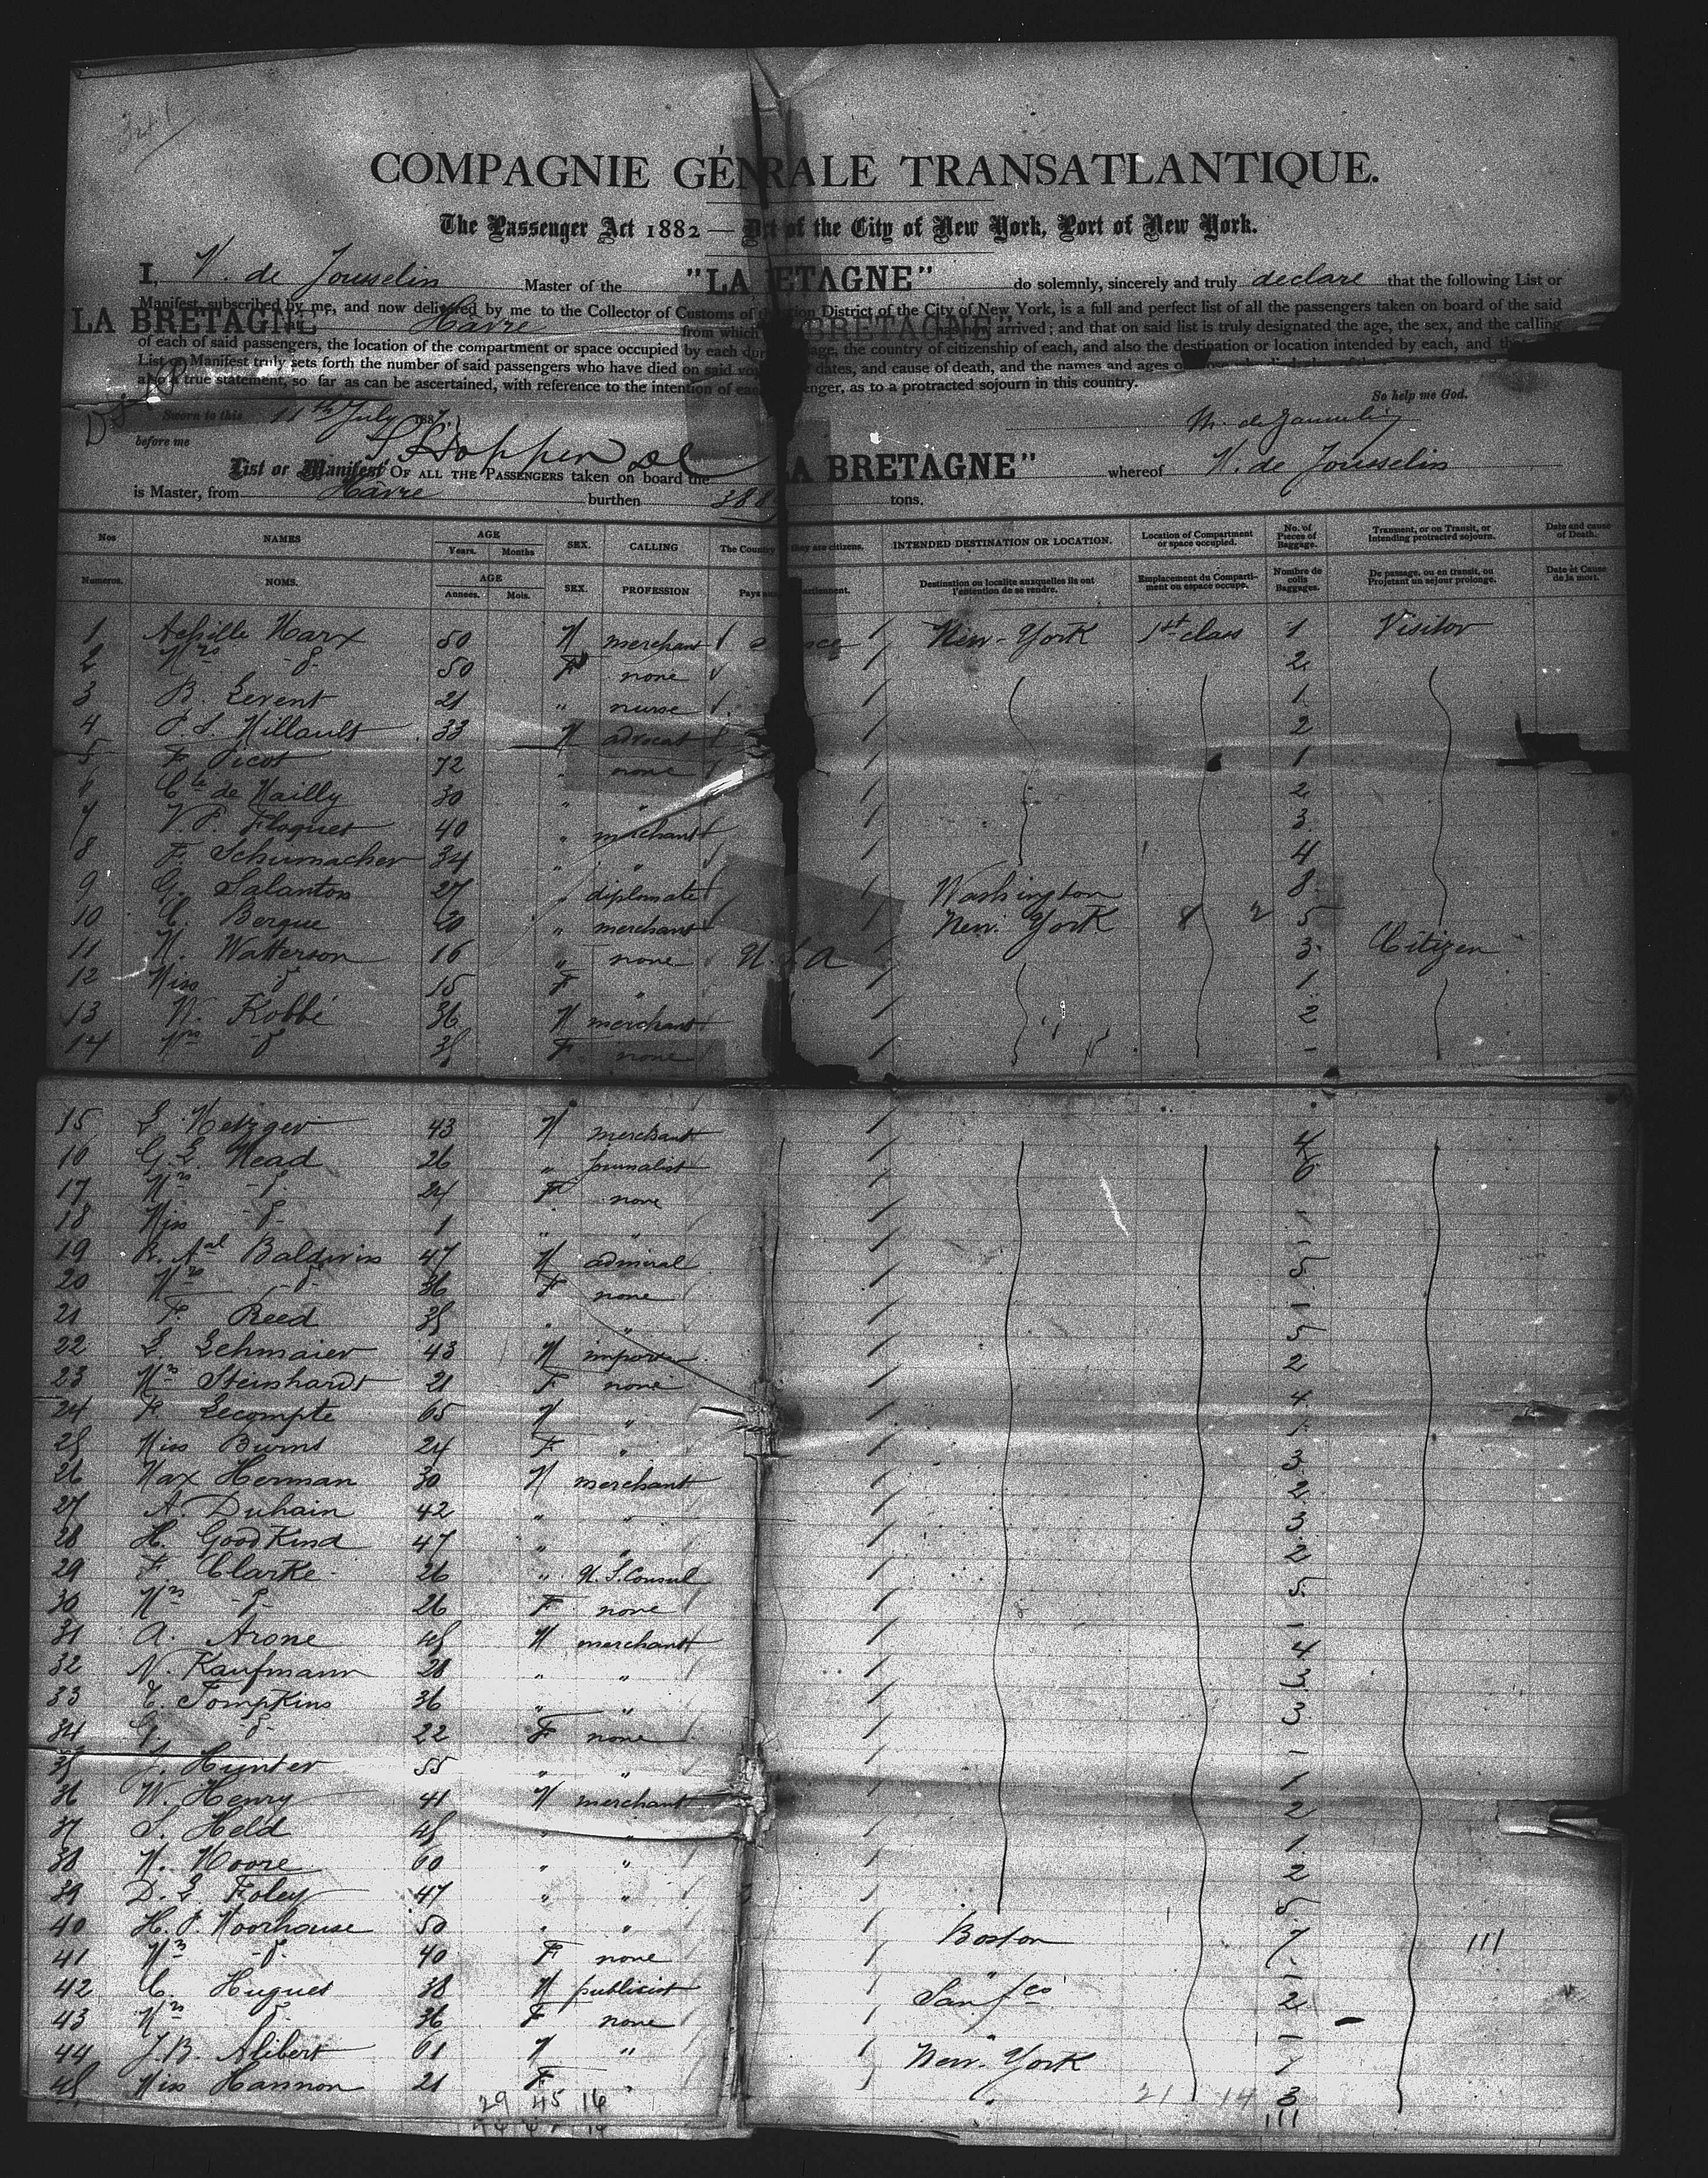 COMPAGNIE GÉNRALE TRANSATLANTIQUE.
The Passenger Act 1882 — of the City of New York, Port of New York.
I, V. de Jousselin Master of the "LA ETAGNE" do solemnly, sincerely and truly declare that the following List or
Manifest, subscribed by me, and now delivered by me to the Collector of Customs of the District of the City of New York, is a full and perfect list of all the passengers taken on board of the said
LA BRETAGNE Havre from which BRETAGNE has now arrived; and that on said list is truly designated the age, the sex, and the calling
of each of said passengers, the location of the compartment or space occupied by each age, the country of citizenship of each, and also the destination or location intended by each, and
List or Manifest truly sets forth the number of said passengers who have died on said dates, and cause of death, and the names and ages
also a true statement, so far as can be ascertained, with reference to the intention of enger, as to a protracted sojourn in this country.
So help me God.
Sworn to this 11th July 1887
before me
List or Manifest OF ALL THE PASSENGERS taken on board the A BRETAGNE" whereof V. de Jousselin
is Master, from Hâvre burthen tons.
Nos NAMES AGE Years. Months SEX. CALLING The Country they are citizens. INTENDED DESTINATION OR LOCATION. Location of Compartment or space occupied. No. of Pieces of Baggage. Transient, or on Transit, or Intending protracted sojourn. Date and cause of Death.
Numeros. NOMS. AGE Annees. Mois. SEX. PROFESSION Pays Destination ou localite auxquelles ils ont l'entention de se rendre. Emplacement du Compartiment ou espace occupe. Nombre de colis Baggages. De passage, ou en transit, ou Projetant un sejour prolonge. Date et Cause de la mort.
1 Achille Marx 50 M merchant New-York 1st class 1 Visitor
2 Mrs d° 50 F none 2
3 B. Levent 21 " nurse 1
4 P. S. Millault 33 M advocat 2
5 F. Picot 72 " none 1
6 Cte de Mailly 30 " " 2
7 V. P. Floquet 40 " merchant 3
8 F. Schumacher 34 " " 4
9 G. Salanton 27 " diplomate Washington 8
10 C. Bergue 20 " merchant New-York 5
11 H. Watterson 16 " none U.S.A 3 Citizen
12 Miss d° 15 F " 1
13 W. Kobbé 36 M merchant 2
14 Mrs d° 35 F none -
15 L. Metzger 43 M merchant 4
16 G. L. Mead 26 " journalist 6
17 Mrs d° 24 F none
18 Miss d° 1 " "
19 R. Aal Baldwin 47 M admiral 5
20 Mrs d° 36 F none
21 F. Reed 35 " " 5
22 L. Lehmaier 43 M importer 2
23 Mrs Steinhardt 21 F none 4
24 F. Lecompte 65 M " 1
25 Miss Burns 24 F " 3
26 Max Herman 30 M merchant 2
27 A. Duhain 42 " " 3
28 H. GoodKind 47 " " 2
29 F. Clarke 26 " U.S. Consul 5
30 Mrs d° 26 F none -
31 A. Arone 45 M merchant 4
32 N. Kaufmann 28 " " 3
33 E. Tompkins 36 " " 3
34 G. d° 22 F none -
35 J. Hunter 55 " " 1
36 W. Henry 41 M merchant 2
37 S. Held 45 " " 1
38 M. Moore 60 " " 2
39 D. L. Foley 47 " " 5
40 H. P. Moorhouse 50 " " Boston 7 111
41 Mrs d° 40 F none " -
42 C. Hugues 38 M publicist San fco 2
43 Mrs d° 36 F none " -
44 J. B. Alibert 61 M " New-York 1
45 Miss Hannon 21 F " " 3
29 45 16 21 14 111